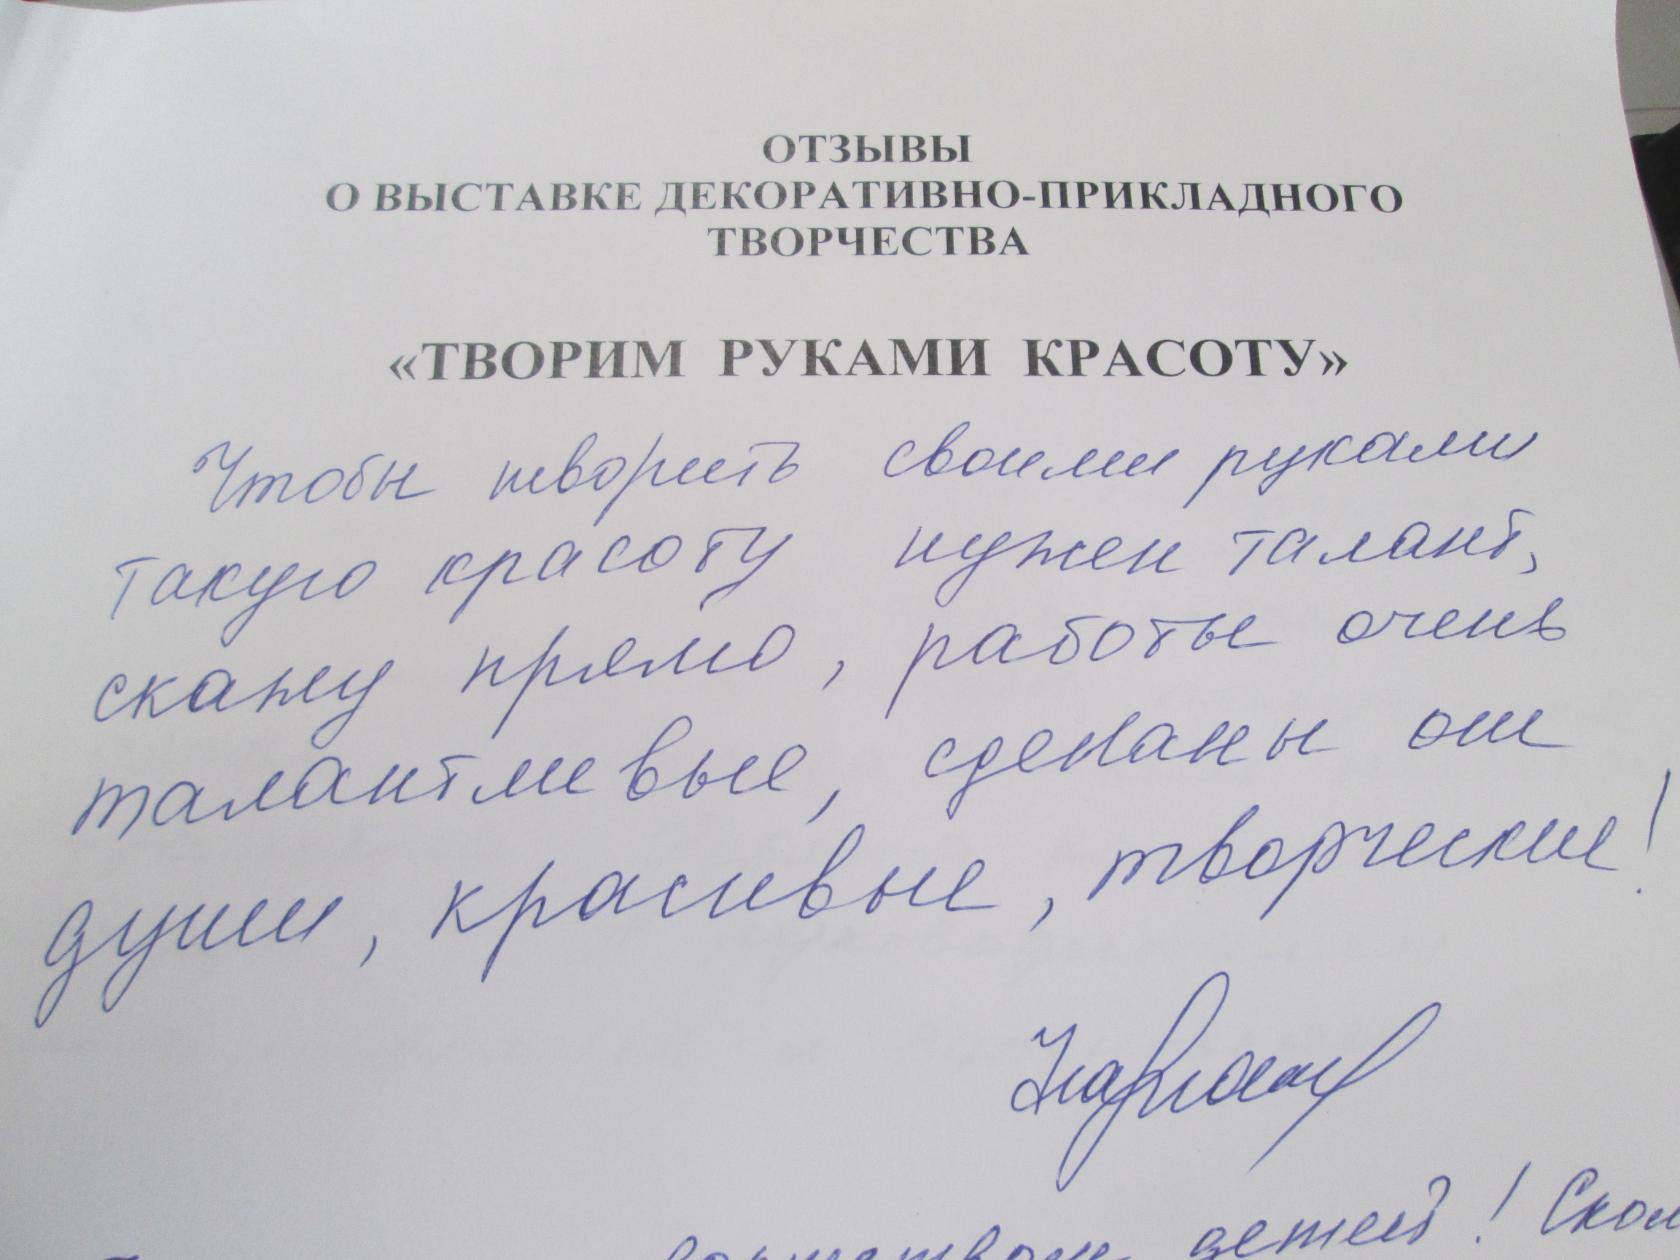 ОТЗЫВЫ
О ВЫСТАВКЕ ДЕКОРАТИВНО-ПРИКЛАДНОГО
ТВОРЧЕСТВА
«ТВОРИМ РУКАМИ КРАСОТУ»
Чтобы творить своими руками
такую красоту нужен талант,
скажу прямо, работы очень
талантливые, сделаны от
души, красивые, творческие!
детей! Скол